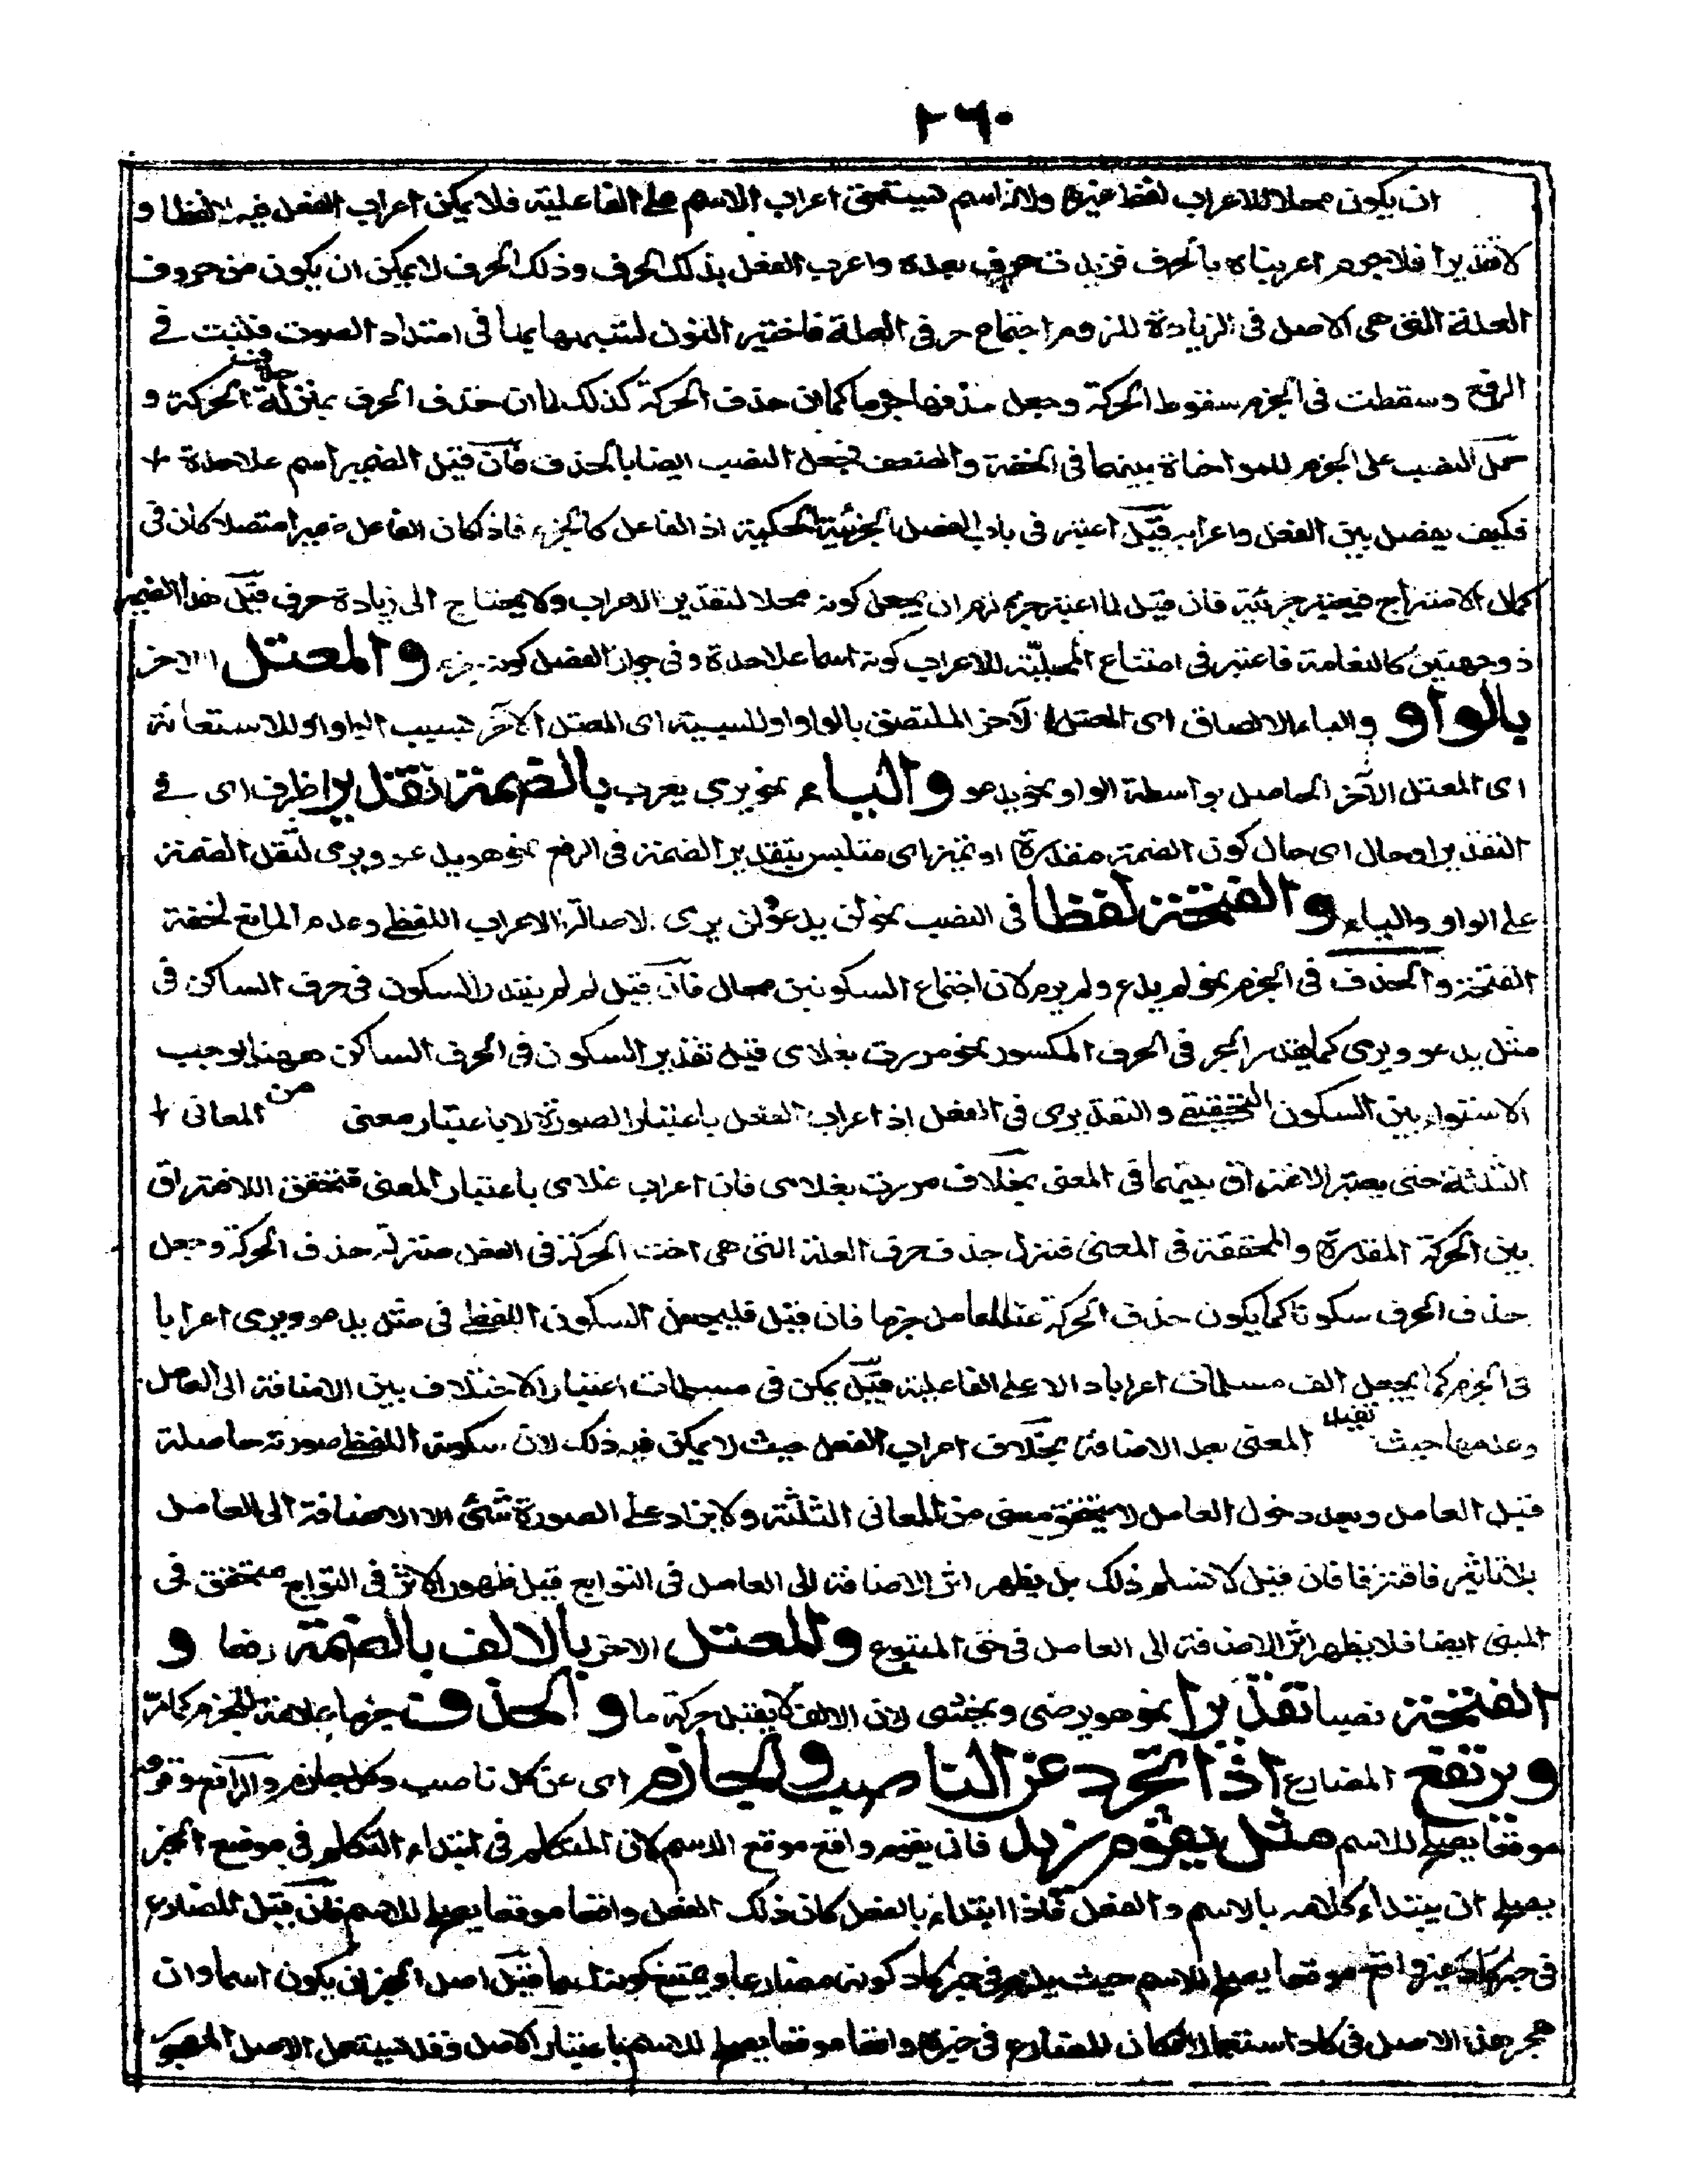 ٢٦٠
ان يكون محلا للاعراب لفظ غيره ولانه اسم يستحق اعراب الاسم على الفاعلية فلا يمكن اعراب الفعل فيه لفظا و
لا تقديرا فلا جرم اعربناه بالحرف فزيدت حرف بعده واعرب الفعل بذلك الحرف وذلك الحرف لا يمكن ان يكون من حروف
العلة التى هى الاصل فى الزيادة للزوم اجتماع حرفى العلة فاختير النون لشبهها بها فى امتداد الصوت فثبت فى
الرفع وسقطت فى الجزم سقوط الحركة وجعل حذفها جزما كما ان حذف الحركة كذلك لما ان حذف الحرف بمنزلة الحركة و
حمل النصب على الجزم للمواخاة بينهما فى الخفة والضعف فجعل النصب ايضا بالحذف فان قيل الضمير اسم علاحدة
فكيف يفصل بين الفعل واعرابه قيل اعتبر فى باب الفصل الجزئية الحكمية اذ الفاعل كالجزء فاذا كان الفاعل ضميرا متصلا كان فى
كمال الامتزاج فيعتبر جزئية فان قيل لما اعتبر جزء لزم ان يجعل كونه محلا لتقدير الاعراب ولا يحتاج الى زيادة حرف قيل هذا الضمير
ذو جهتين كالنعامة فاعتبر فى امتناع المحلية للاعراب كونه اسما علاحدة وفى جواز الفصل كونه جزء والمعتل الاخر
بالواو والباء للالصاق اى المعتل الآخر الملتصق بالواو او للسببية اى المعتل الآخر بسبب الواو او للاستعانة
اى المعتل الآخر الحاصل بواسطة الواو نحو يدعو والياء نحو يرمى يعرب بالضمة تقديرا ظرف اى فى
التقدير او حال اى حال كون الضمة مقدرة او تميز اى متلبس بتقدير الضمة فى الرفع نحو هو يدعو ويرمى لثقل الضمة
على الواو والياء والفتحة لفظا فى النصب نحو لن يدعو لن يرمى لاصالة الاعراب اللفظى وعدم المانع لخفة
الفتحة والحذف فى الجزم نحو لم يدع ولم يرم لان اجتماع السكونين محال فان قيل لم لم يقدر السكون فى حرف الساكن فى
مثل يدعو ويرمى كما يقدر الجر فى الحرف المكسور نحو مررت بغلامى قيل تقدير السكون فى الحرف الساكن ههنا يوجب
الاستواء بين السكون التحقيقى والتقديرى فى الفعل اذ اعراب الفعل باعتبار الصورة لا باعتبار معنى من المعانى
الثلثة حتى يعتبر الافتراق بينهما فى المعنى بخلاف مررت بغلامى فان اعراب غلامى باعتبار المعنى فتحقق الافتراق
بين الحركة المقدرة والمحققة فى المعنى فنزل حذف حرف العلة التى هى اخت الحركة فى الفعل منزلة حذف الحركة وجعل
حذف الحرف سكونا كما يكون حذف الحركة عند العامل جزما فان قيل فليجعل السكون اللفظى فى مثل يدعو ويرمى اعرابا
فى الجزم كما يجعل الف مسلمان اعرابا دالا على الفاعلية قيل يمكن فى مسلمان اعتبار الاختلاف بين الاضافة الى العامل
وعدمها حيث تفيد المعنى بعد الاضافة بخلاف اعراب الفعل حيث لا يمكن فيه ذلك لان سكونه اللفظى صورته حاصلة
قبل العامل وبعد دخول العامل لا يتحقق معنى من المعانى الثلثة ولا يزاد على الصورة شئ الا الاضافة الى العامل
بلا تاثير فافترقا فان قيل لا نسلم ذلك بل يظهر اثر الاضافة الى العامل فى التوابع قيل ظهور الاثر فى التوابع متحقق فى
المبنى ايضا فلا يظهر اثر الاضافة الى العامل فى حق المتبوع والمعتل الاخر بالالف بالضمة رفعا و
الفتحة نصبا تقديرا نحو هو يرضى ويخشى لان الالف لا يقبل حركة ما والحذف جزما علامة للجزم كما مر
ويرتفع المضارع اذا تجرد عن الناصب والجازم اى عن كل ناصب وكل جازم والرافع وقوعه
موقعا يصلح للاسم مثل يقوم زيد فان يقوم واقع موقع الاسم لان المتكلم فى ابتداء التكلم فى موضع الخبر
يصلح ان يبتداء كلامه بالاسم والفعل فاذا ابتداء بالفعل كان ذلك الفعل واقعا موقعا يصلح للاسم فان قيل المضارع
فى خبر كاد غير واقع موقعا يصلح للاسم حيث يلزم فى خبر كاد كونه مضارعا ويمتنع كونه اسما قيل اصل الخبر ان يكون اسما وان
هجر هذا الاصل فى كاد استعمالا فكان المضارع فى خبره واقعا موقعا يصلح للاسم باعتبار الاصل وقد يستعمل الاصل المهجور